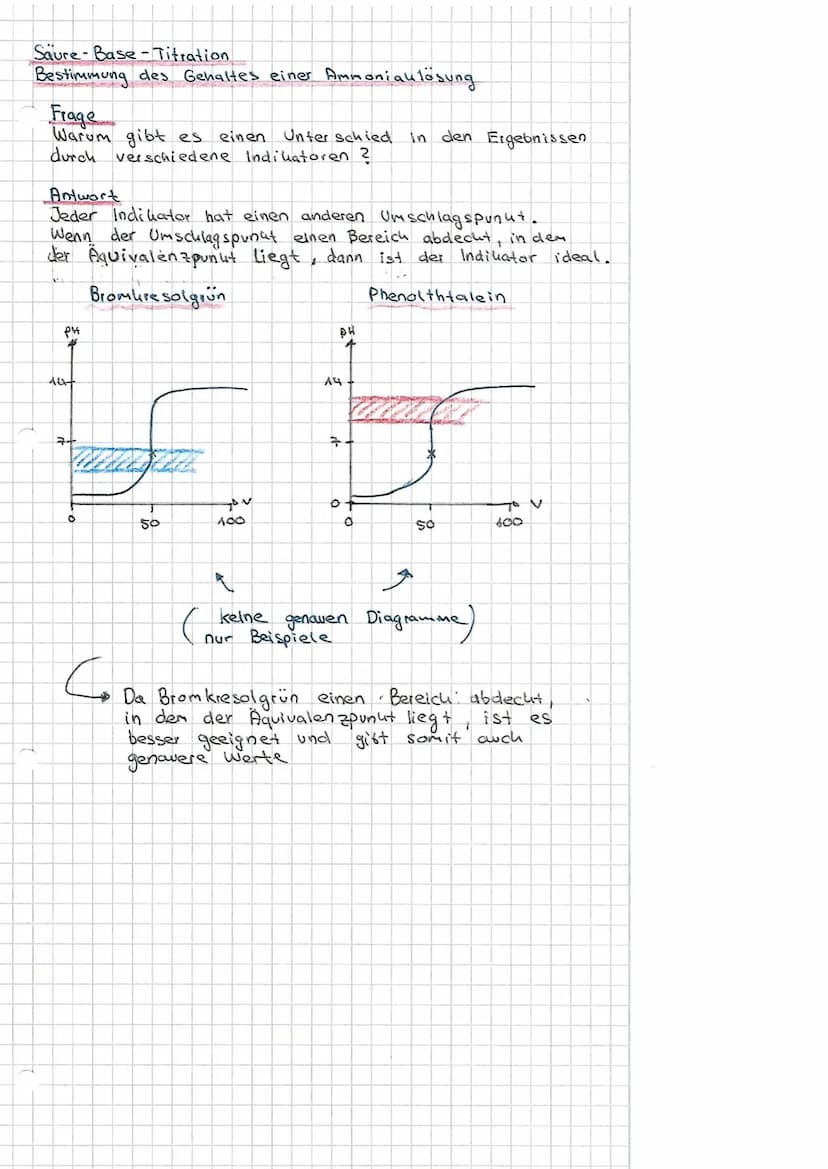 Säure-Base-Titration
Bestimmung des Gehaltes einer Ammoniaklösung
Frage
Warum gibt es einen Unterschied in den Ergebnissen
durch verschiedene Indikatoren ?
Antwort
Jeder Indikator hat einen anderen Umschlagspunkt.
Wenn der Umschlagspunkt einen Bereich abdeckt, in dem
der Äquivalenzpunkt liegt, dann ist der Indikator ideal.
Bromkresolgrün
Phenolthtalein
pH
14
7
0
50
100
V
pH
14
7
0
0
50
100
V
( keine genauen Diagramme )
nur Beispiele
Da Bromkresolgrün einen Bereich abdeckt,
in dem der Äquivalenzpunkt liegt, ist es
besser geeignet und gibt somit auch
genauere Werte